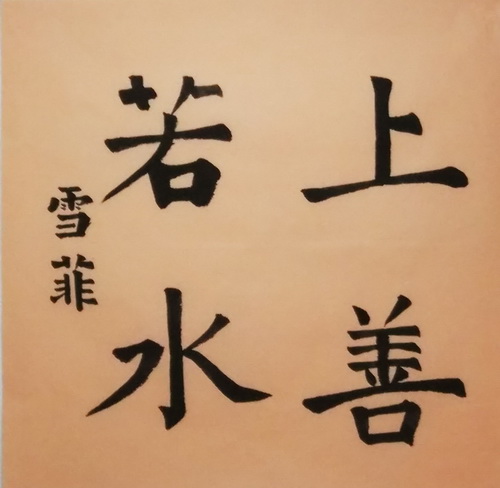 上善
若水
雪菲